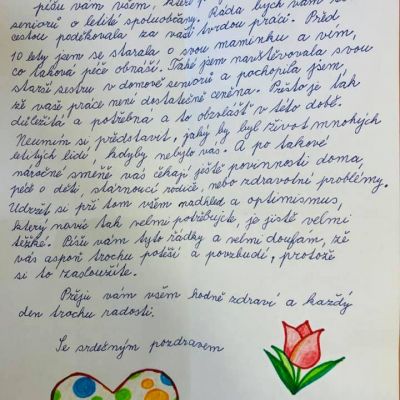 píšu vám všem, kteří p
seniorů o letité spoluobčany. Ráda bych vám
cestou poděkovala za vaši tvrdou práci. Před
10 lety jsem se starala o svou maminku a vím,
co taková péče obnáší. Také jsem navštěvovala svou
starší sestru v domově seniorů a pochopila jsem,
že vaše práce není dostatečně ceněna. Přesto je tak
důležitá a potřebná a to obzvlášť v této době.
Neumím si představit, jaký by byl život mnohých
letitých lidí, kdyby nebylo vás. A po takové
náročné směně vás čekají ještě povinnosti doma,
péče o děti, stárnoucí rodiče, nebo zdravotní problémy.
Udržet si při tom všem nadhled a optimismus,
který navíc tak velmi potřebujete, je jistě velmi
těžké. Píši vám tyto řádky a velmi doufám, že
vás aspoň trochu potěší a povzbudí, protože
si to zasloužíte.
Přeji vám všem hodně zdraví a každý
den trochu radosti.
Se srdečným pozdravem